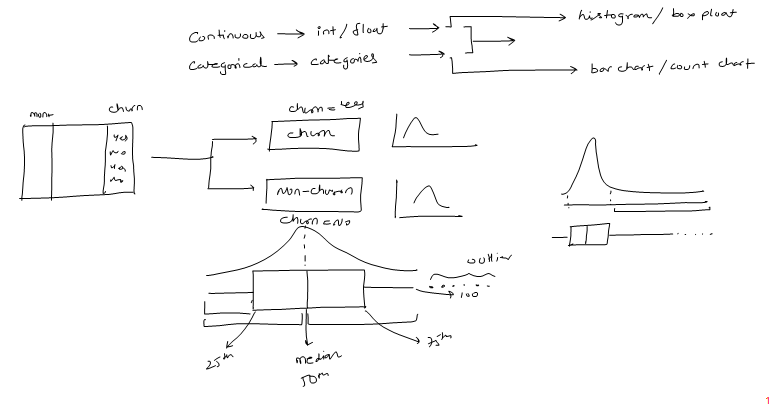 Continuous → int / float → histogram / box ploat
Categorical → categories → bar chart / count chart
churn = yes
churn
churn
yes
no
ya
no
non-churn
churn = No
outlier
100
25th
median
50th
75th
1